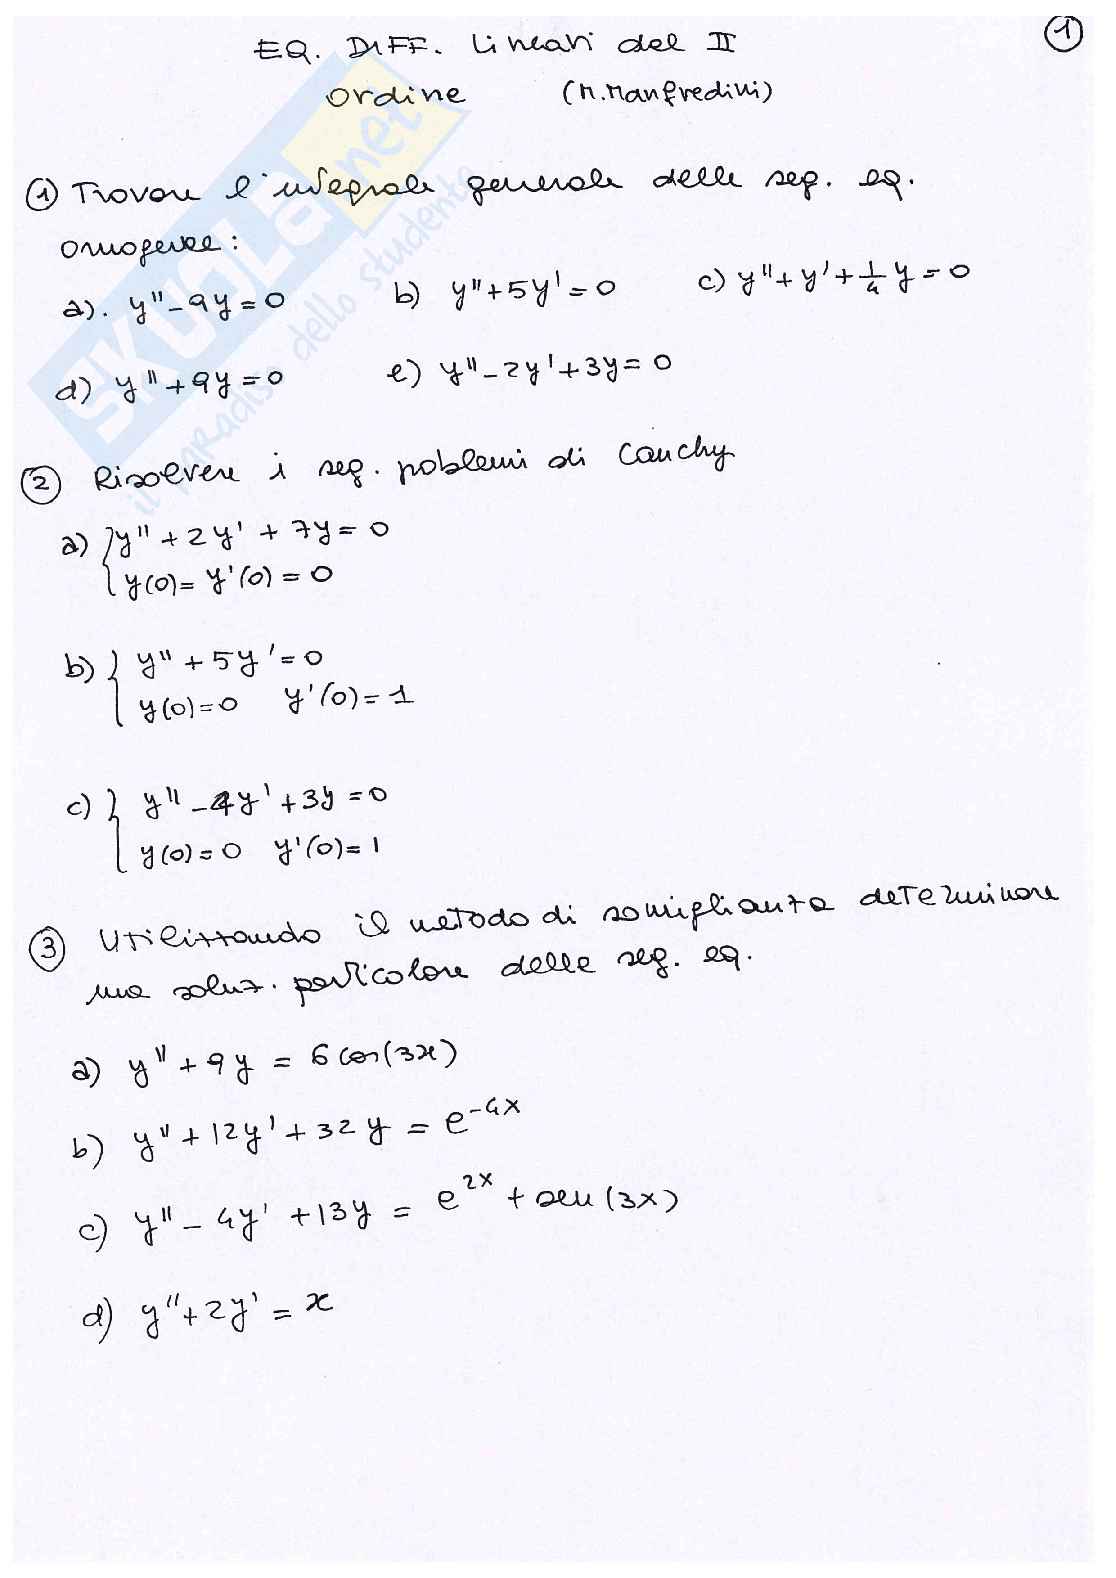 1
EQ. DIFF. Lineari del II
ordine (M. Manfredini)
1 Trovare l'integrale generale delle seg. eq.
omogenee:
a). y'' - 9y = 0 b) y'' + 5y' = 0 c) y'' + y' + 1/4 y = 0
d) y'' + 9y = 0 e) y'' - 2y' + 3y = 0
2 Risolvere i seg. poblemi di Cauchy
a) { y'' + 2y' + 7y = 0
y(0) = y'(0) = 0
b) { y'' + 5y' = 0
y(0) = 0 y'(0) = 1
c) { y'' - 4y' + 3y = 0
y(0) = 0 y'(0) = 1
3 Utilizzando il metodo di somiglianza determinare
una soluz. particolare delle seg. eq.
a) y'' + 9y = 6 cos(3x)
b) y'' + 12y' + 32y = e^{-4x}
c) y'' - 4y' + 13y = e^{2x} + sen(3x)
d) y'' + 2y' = x
SKUOLA.net
il paradiso dello studente